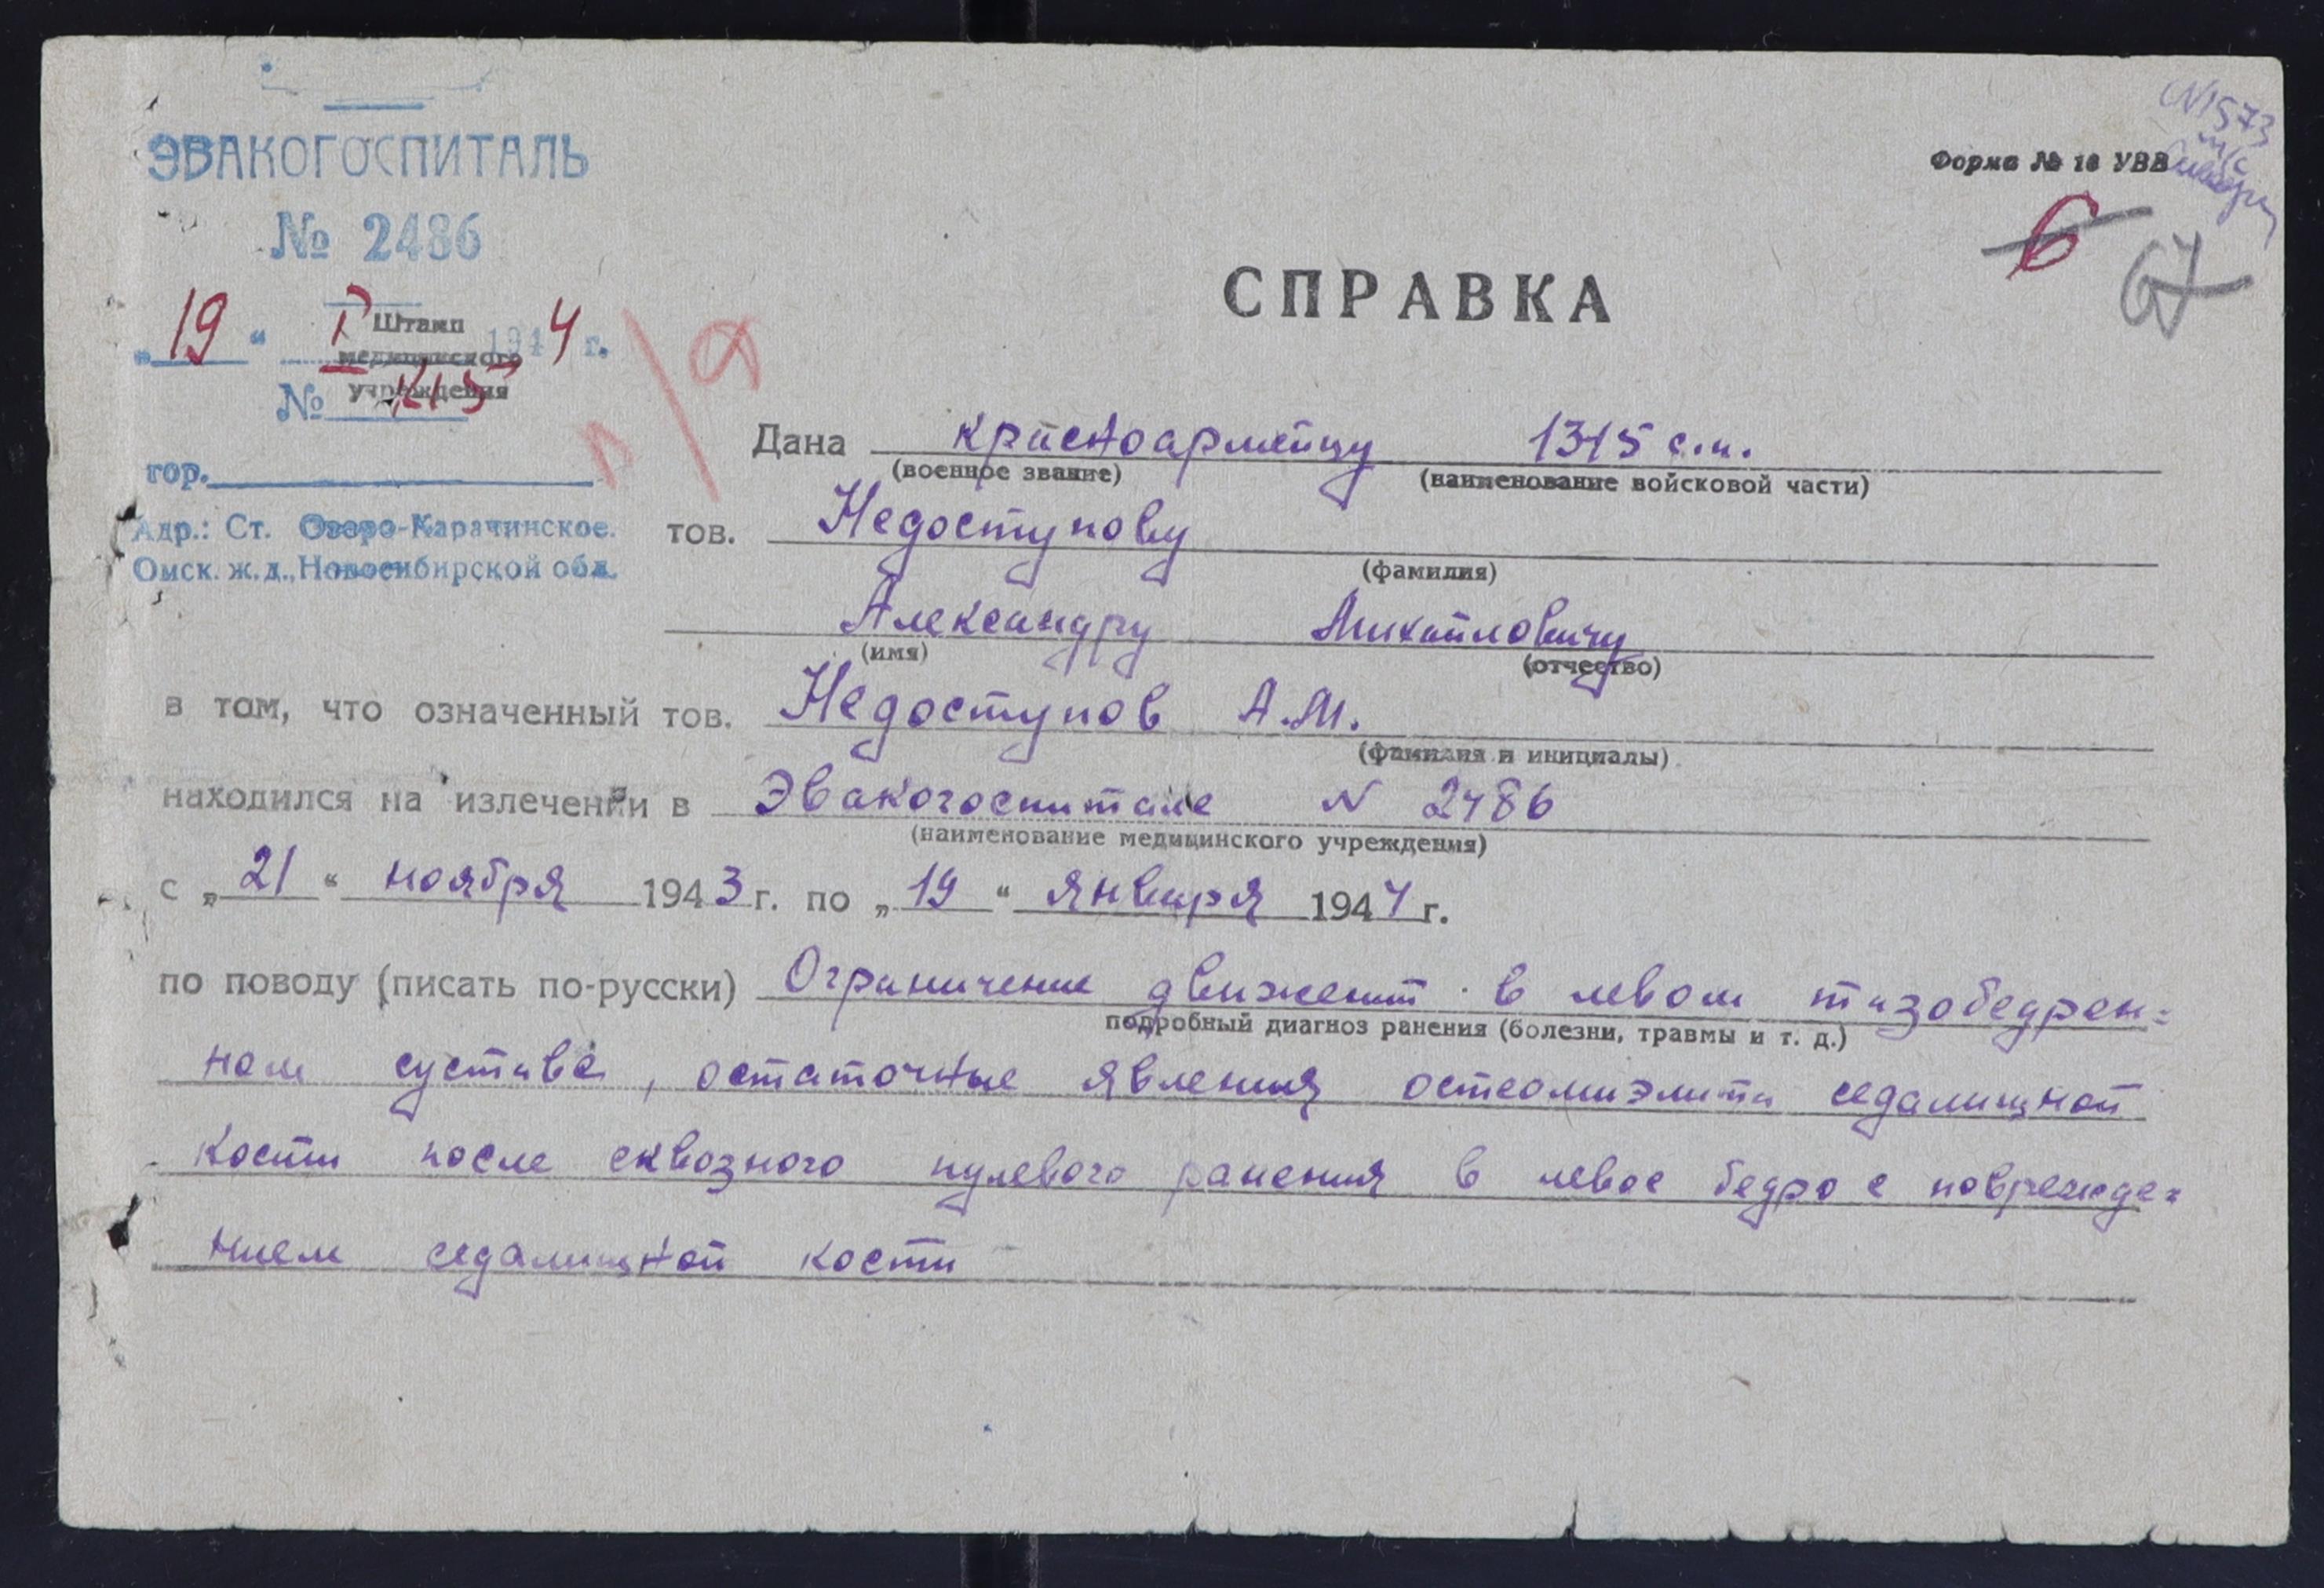 ЭВАКОГОСПИТАЛЬ
№ 2486
Форма № 16 УВВ
6
67
СПРАВКА
„19“ I 1944 г.
Штамп
медицинского
учреждения
№
п/я
гор.
Адр.: Ст. Озеро-Карачинское.
Омск. ж. д., Новосибирской обл.
Дана красноармейцу 1315 с.п.
(военное звание) (наименование войсковой части)
тов. Недоступову
(фамилия)
Александру Михайловичу
(имя) (отчество)
в том, что означенный тов. Недоступов А.М.
(фамилия и инициалы)
находился на излечении в Эвакогоспитале N 2486
(наименование медицинского учреждения)
с „21“ ноября 1943 г. по „19“ января 1944 г.
по поводу (писать по-русски) Ограничение движений в левом тазобедрен=
подробный диагноз ранения (болезни, травмы и т. д.)
ном суставе, остаточные явления остеомиэлита седалищной
кости после сквозного пулевого ранения в левое бедро с поврежде=
нием седалищной кости